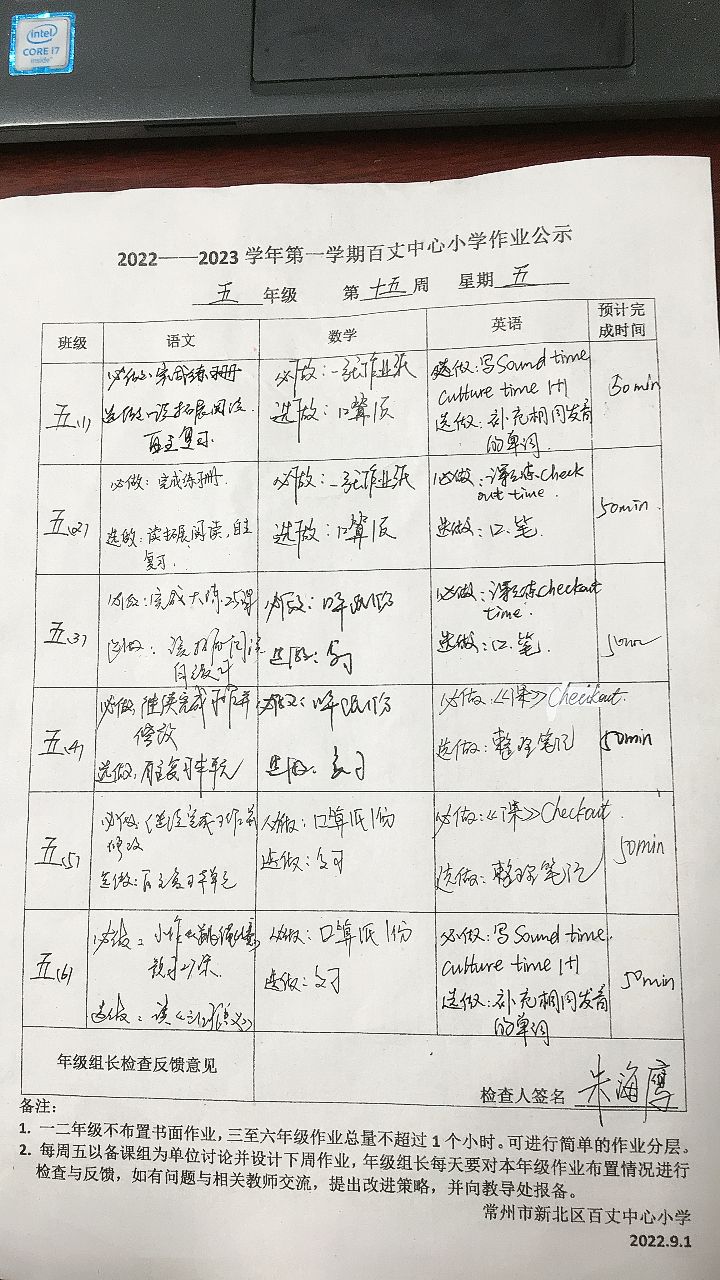 intel
CORE i7
inside
2022——2023 学年第一学期百丈中心小学作业公示
五 年级 第 十五 周 星期 五
班级 语文 数学 英语 预计完成时间
五(1)
必做:完成练习册
选做:读拓展阅读.
自主复习.
必做:一张作业纸
选做:口算1页
选做:写Sound time
culture time 1+1
选做:补充相同发音
的单词.
50min
五(2)
必做:完成练习册.
选做:读拓展阅读,自主
复习.
必做:一张作业纸
选做:口算1页
必做:课课练check
out time.
选做:口.笔.
50min.
五(3)
必做:完成大练25课
选做:读拓展阅读
必做:口算纸1份
选做:复习
必做:课课练checkout
time.
选做:口.笔.
50min
五(4)
必做:继续完成习作并
修改
选做:自主复习本单元
必做:口算纸1份
选做:复习
必做:《课》Checkout.
选做:整理笔记
50min
五(5)
必做:继续完成习作并
修改
选做:自主复习本单元
必做:口算纸1份
选做:复习
必做:《课》Checkout.
选做:整理笔记
50min
五(6)
必做:小作
预习27课.
选做:读《三国演义》
必做:口算纸1份
选做:复习
必做:写Sound time.
culture time 1+1
选做:补充相同发音
的单词
50min
年级组长检查反馈意见
检查人签名 朱海鹰
备注:
1. 一二年级不布置书面作业,三至六年级作业总量不超过 1 个小时。可进行简单的作业分层。
2. 每周五以备课组为单位讨论并设计下周作业,年级组长每天要对本年级作业布置情况进行
检查与反馈,如有问题与相关教师交流,提出改进策略,并向教导处报备。
常州市新北区百丈中心小学
2022.9.1